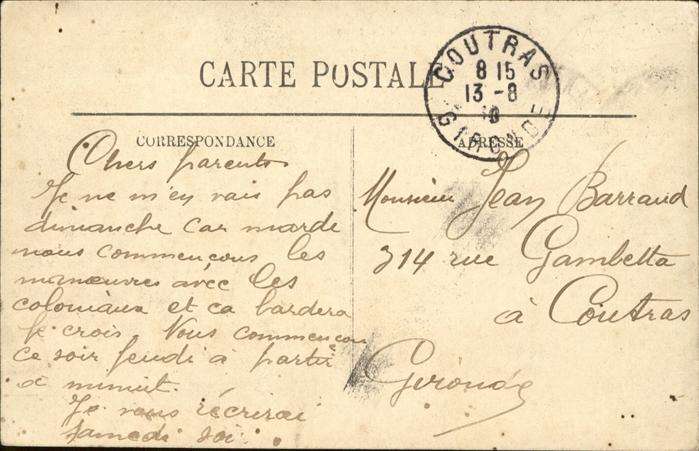 CARTE POSTALE
COUTRAS
8 15
13 -8
GIRONDE
CORRESPONDANCE
ADRESSE
Chers parents
Je ne m'en vais pas
dimanche car marde
nous commencons les
manœuvres avec les
coloniaux et ca bardera
je crois. Nous commencon
ce soir jeudi a partir
a minuit.
Je vous récrirai
samedi soi
Monsieur Jean Barraud
314 rue Gambetta
à Coutras
Gironde